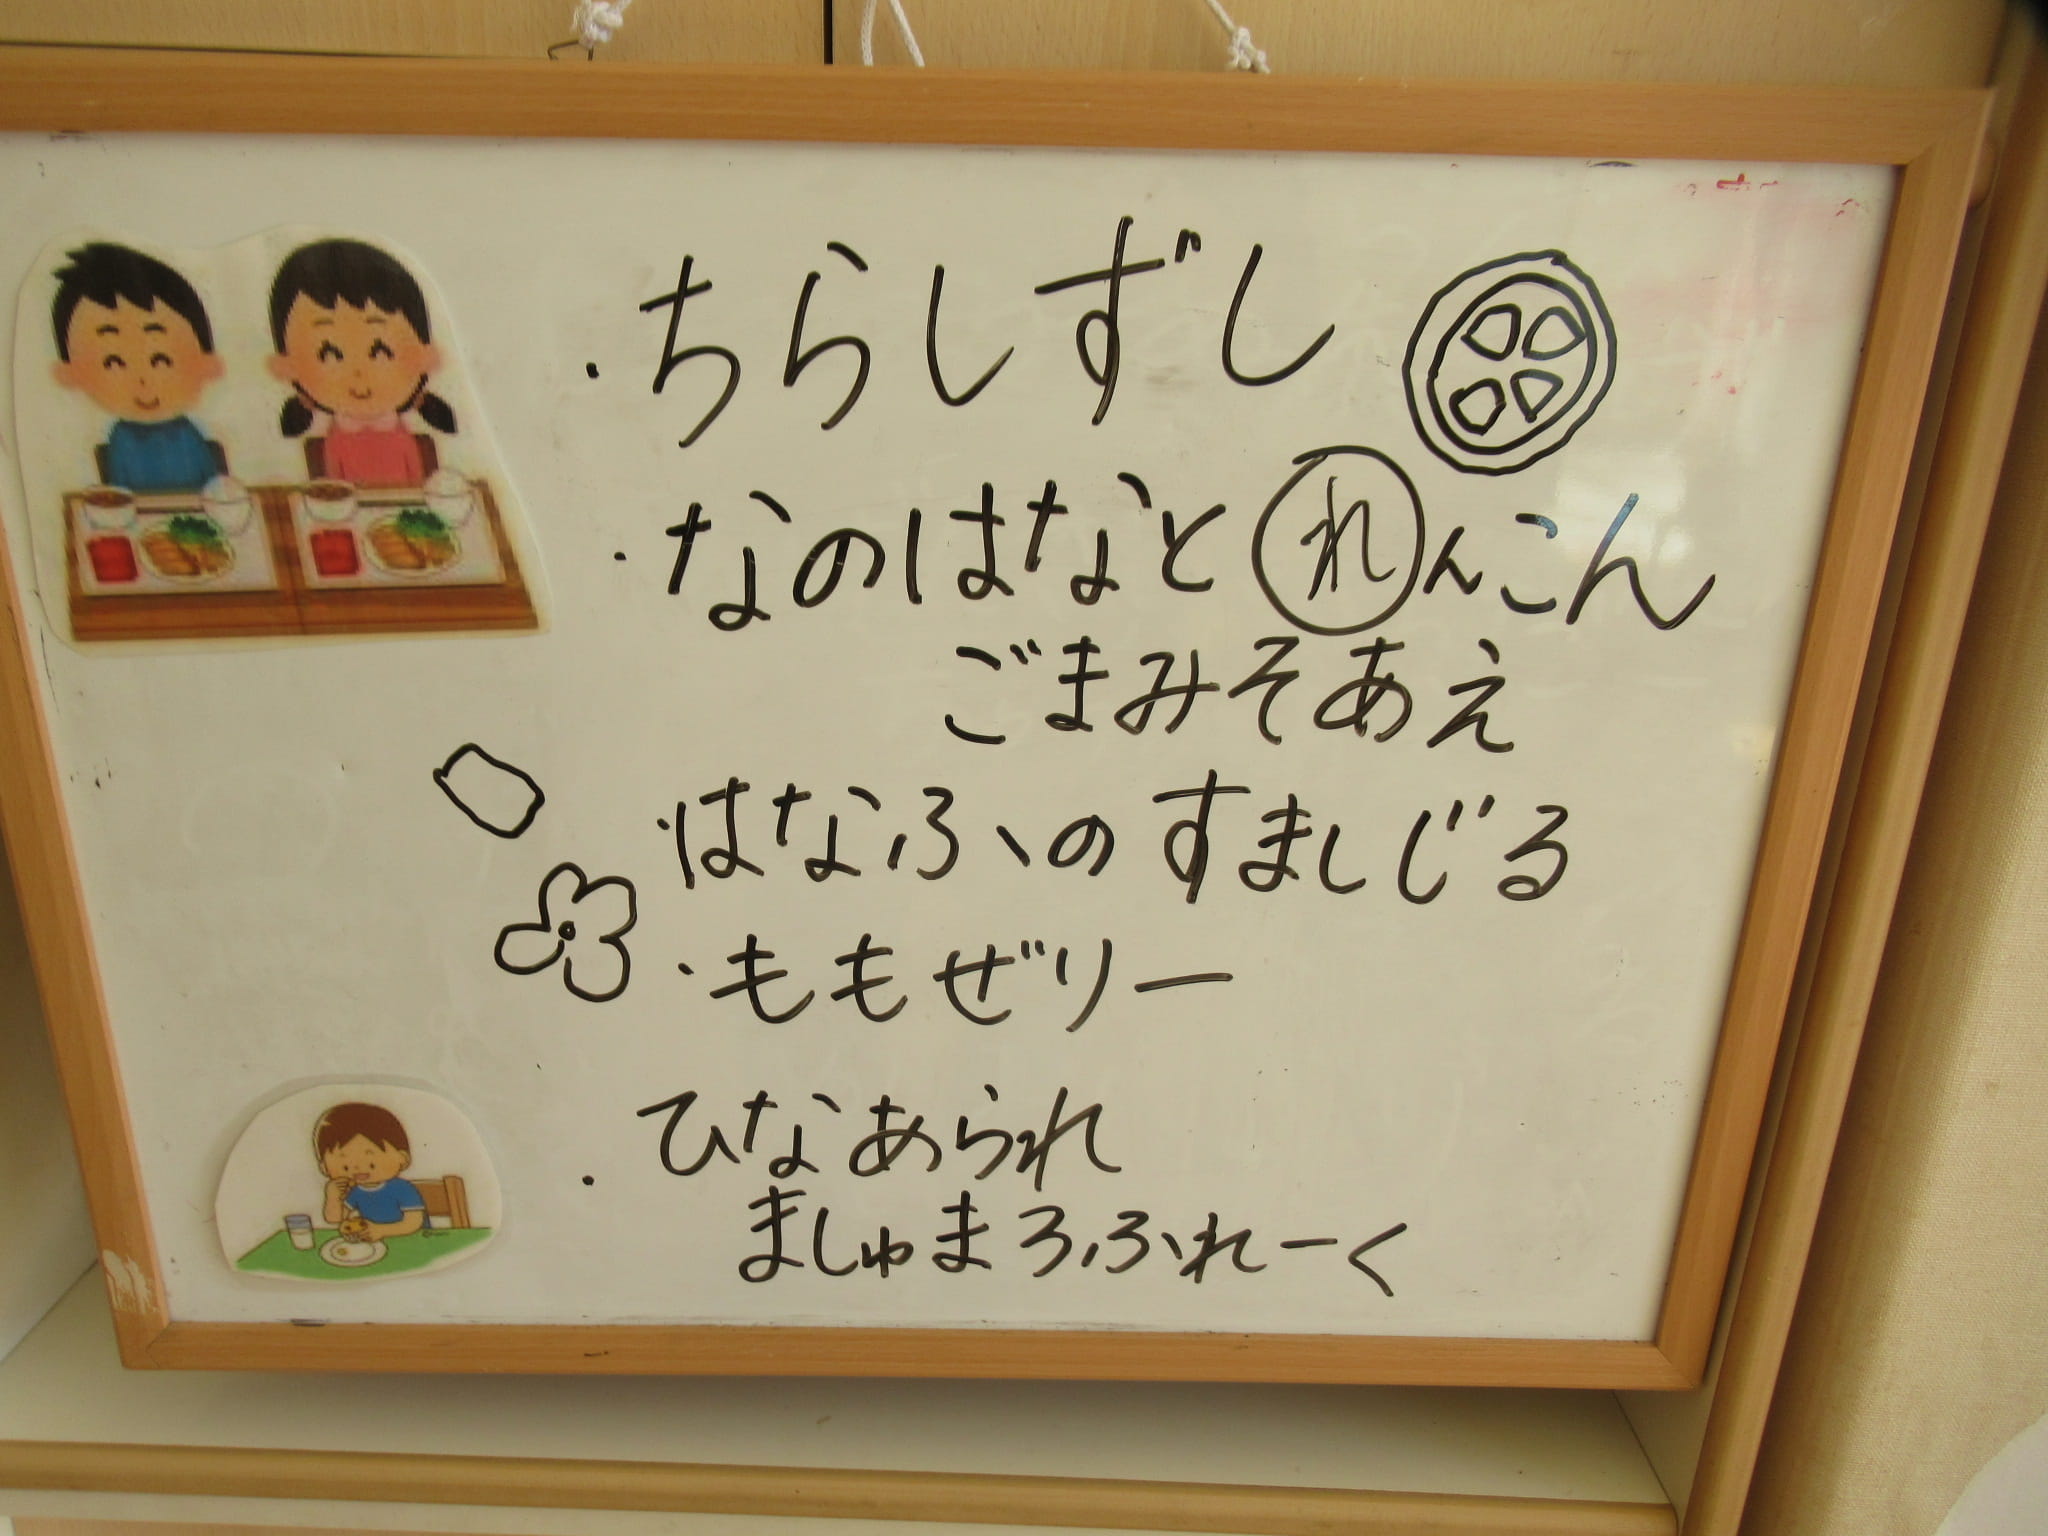 ・ちらしずし
・なのはなとれんこん
ごまみそあえ
・はなふのすましじる
・ももぜりー
・ひなあられ
ましゅまろふれーく